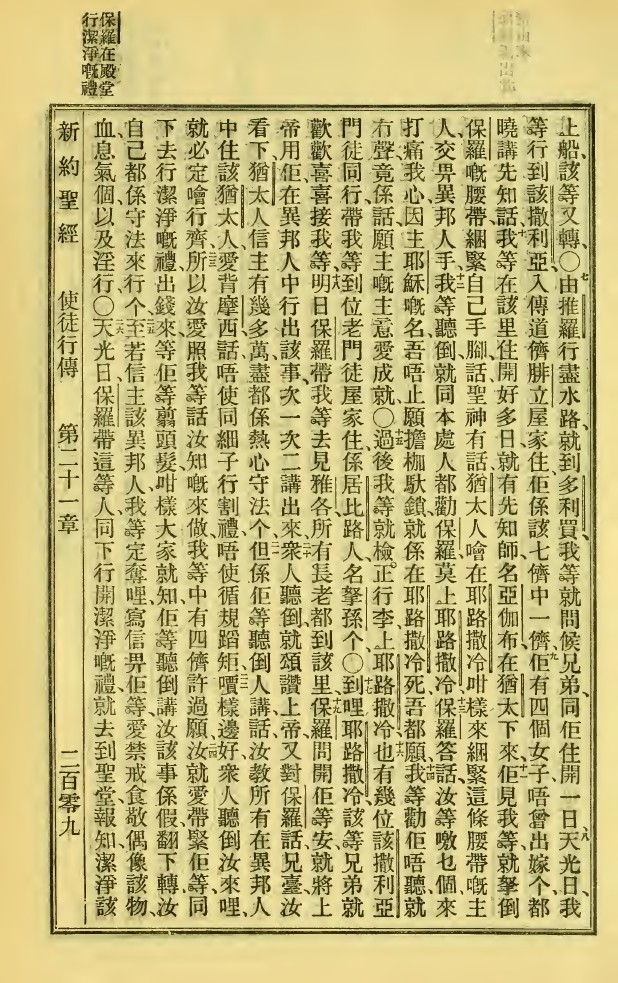 保羅在殿堂
行潔淨嘅禮
上船、該等又轉、〇七由推羅行盡水路、就到多利買、我等就問候兄弟、同佢住開一日、八天光日、我
等行到該撒利亞、入傳道儕腓立屋家住、佢係該七儕中一儕、九佢有四個女子、唔曾出嫁个、都
曉講先知話、十我等在該里住開好多日、就有先知師名亞伽布、在猶太下來、十一佢見我等、就拏倒
保羅嘅腰帶、綑緊自己手腳、話聖神有話、猶太人噲在耶路撒冷、咁樣來綑緊這條腰帶嘅主
人、交畀異邦人手、十二我等聽倒、就同本處人、都勸保羅莫上耶路撒冷、十三保羅答話、汝等噭乜個、來
打痛我心、因主耶穌嘅名、吾唔止願擔枷馱鎖、就係在耶路撒冷死、吾都願、十四我等勸佢唔聽、就
冇聲、竟係話、願主嘅主意愛成就、〇十五過後我等就檢正行李、上耶路撒冷、十六也有幾位該撒利亞
門徒同行、帶我等到位老門徒屋家住、係居比路人、名拏孫个、〇十七到哩耶路撒冷、該等兄弟就
歡歡喜喜接我等、十八明日保羅帶我等去見雅各、所有長老都到該里、十九保羅問開佢等安、就將上
帝用佢在異邦人中行出該事、一次一二講出來、二十衆人聽倒、就頌讚上帝、又對保羅話、兄臺、汝
看下、猶太人信主有幾多萬、盡都係熱心守法个、二一但係佢等聽倒人講話、汝教所有在異邦人
中住該猶太人、愛背摩西、話唔使同細子行割禮、唔使循規蹈矩、二二嘪樣邊好、衆人聽倒汝來哩、
就必定噲行齊、二三所以汝愛照我等話汝知嘅來做、我等中有四儕許過願、二四汝就愛帶緊佢等、同
下去行潔淨嘅禮、出錢來等佢等剪頭髮、咁樣大家就知佢等聽倒講汝該事係假、翻下轉汝
自己都係守法來行个、二五至若信主該異邦人、我等定奪哩、寫信畀佢等、愛禁戒食敬偶像該物、
血、息氣個、以及淫行、〇二六天光日保羅帶這等人、同下行開潔淨嘅禮、就去到聖堂、報知潔淨該
新約聖經 使徒行傳 第二十一章 二百零九